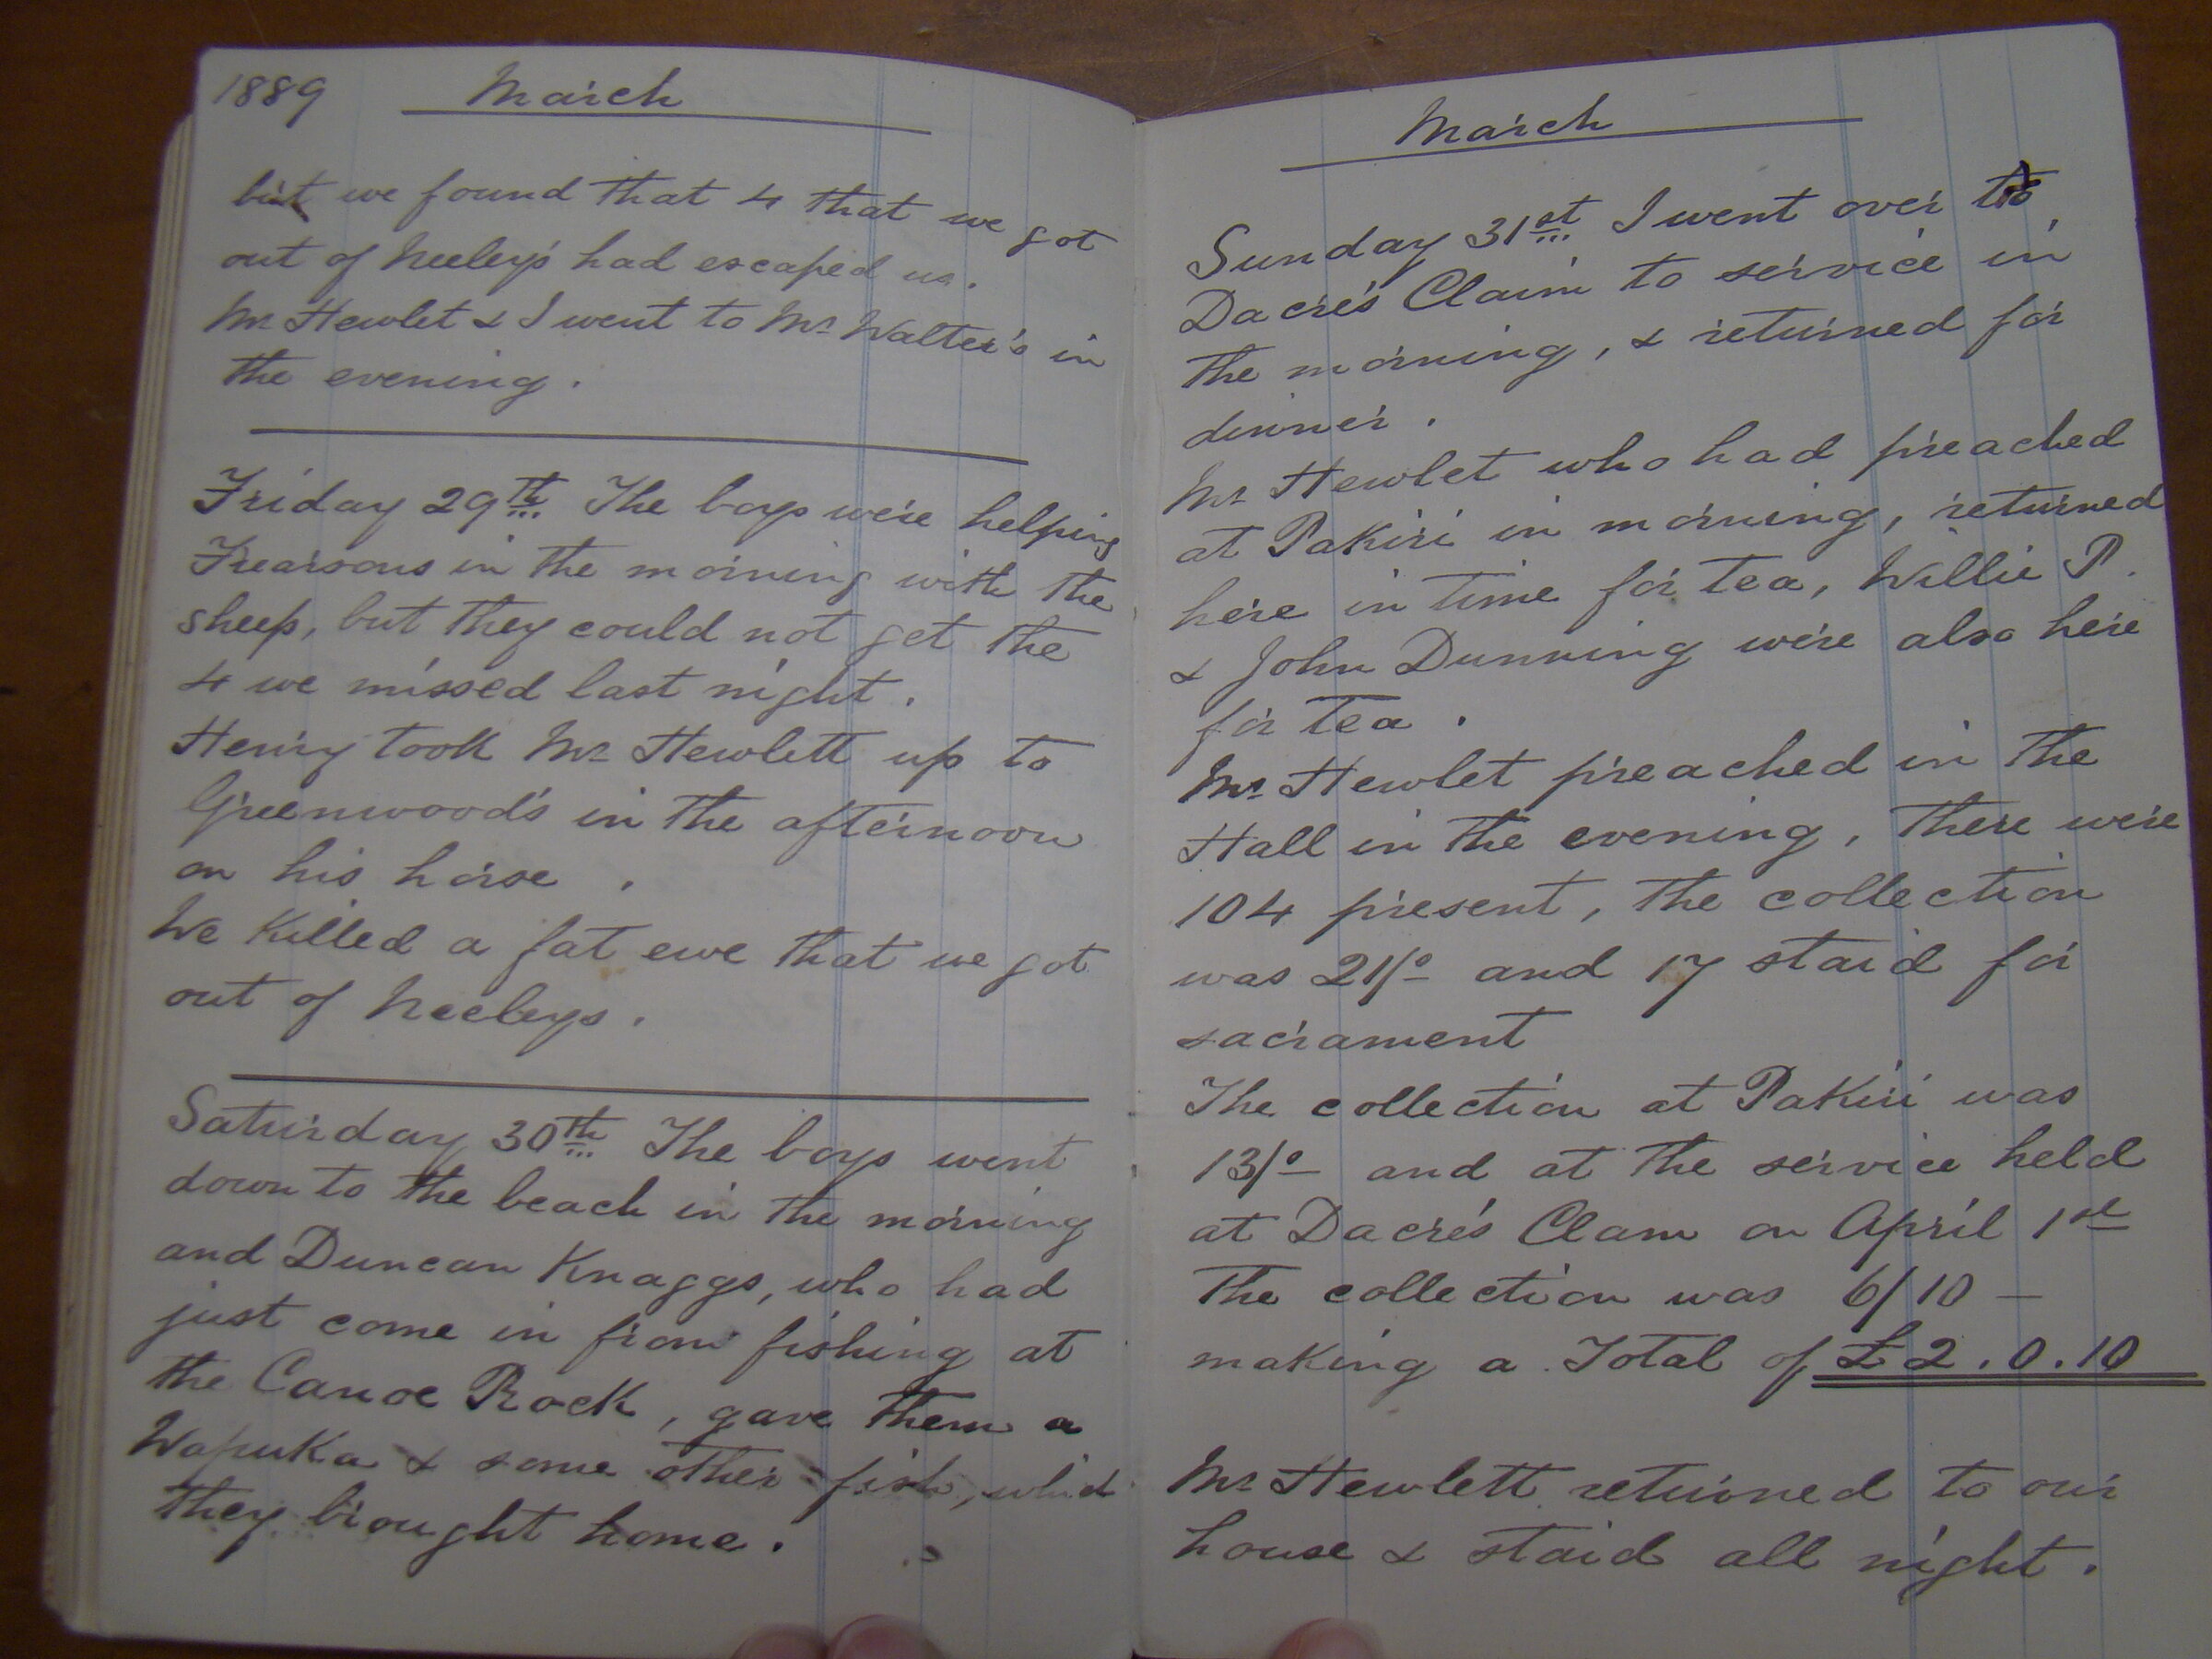 1889 March
but we found that 4 that we got
out of Neeley's had escaped us.
Mr Hewlet & I went to Mr Walter's in
the evening.
Friday 29th The boys were helping
Frearsons in the morning with the
sheep, but they could not get the
4 we missed last night.
Henry took Mr Hewlett up to
Greenwood's in the afternoon
on his horse.
We killed a fat ewe that we got
out of Neeleys.
Saturday 30th The boys went
down to the beach in the morning
and Duncan Knaggs, who had
just come in from fishing at
the Canoe Rock, gave them a
Wapuka & some other fish, which
they brought home.
March
Sunday 31st I went over to
Dacre's Claim to service in
the morning, & returned for
dinner.
Mr Hewlet who had preached
at Pakiri in morning, returned
here in time for tea, Willie P.
& John Dunning were also here
for tea.
Mr Hewlet preached in the
Hall in the evening, There were
104 present, the collection
was 21/0 and 17 staid for
sacrament
The collection at Pakiri was
13/0 and at the service held
at Dacre's Clam on April 1st
the collection was 6/10 —
making a Total of £2.0.10
Mr Hewlett returned to our
house & staid all night.